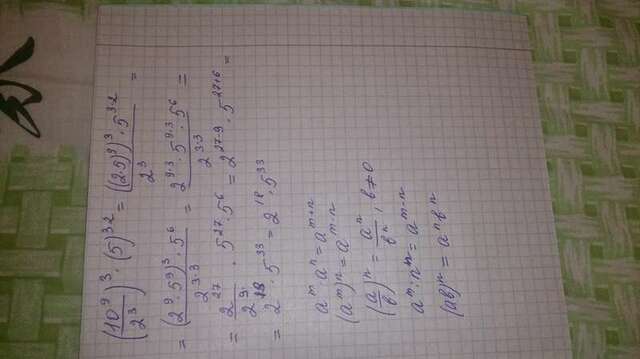 (10⁹/2³)³ · (5)³² = ((2·5)⁹)³ · 5³·² / 2³ =
= (2⁹·5⁹)³ · 5⁶ / 2³·³ = 2⁹·³ · 5⁹·³ · 5⁶ / 2³·³ =
= 2²⁷ / 2⁹ · 5²⁷ · 5⁶ = 2²⁷⁻⁹ · 5²⁷⁺⁶ =
= 2¹⁸ · 5³³ = 2¹⁸ · 5³³
aᵐ · aⁿ = aᵐ⁺ⁿ
(aᵐ)ⁿ = aᵐ·ⁿ
(a/b)ⁿ = aⁿ/bⁿ, b≠0
aᵐ : nⁿ = aᵐ⁻ⁿ
(ab)ⁿ = aⁿbⁿ